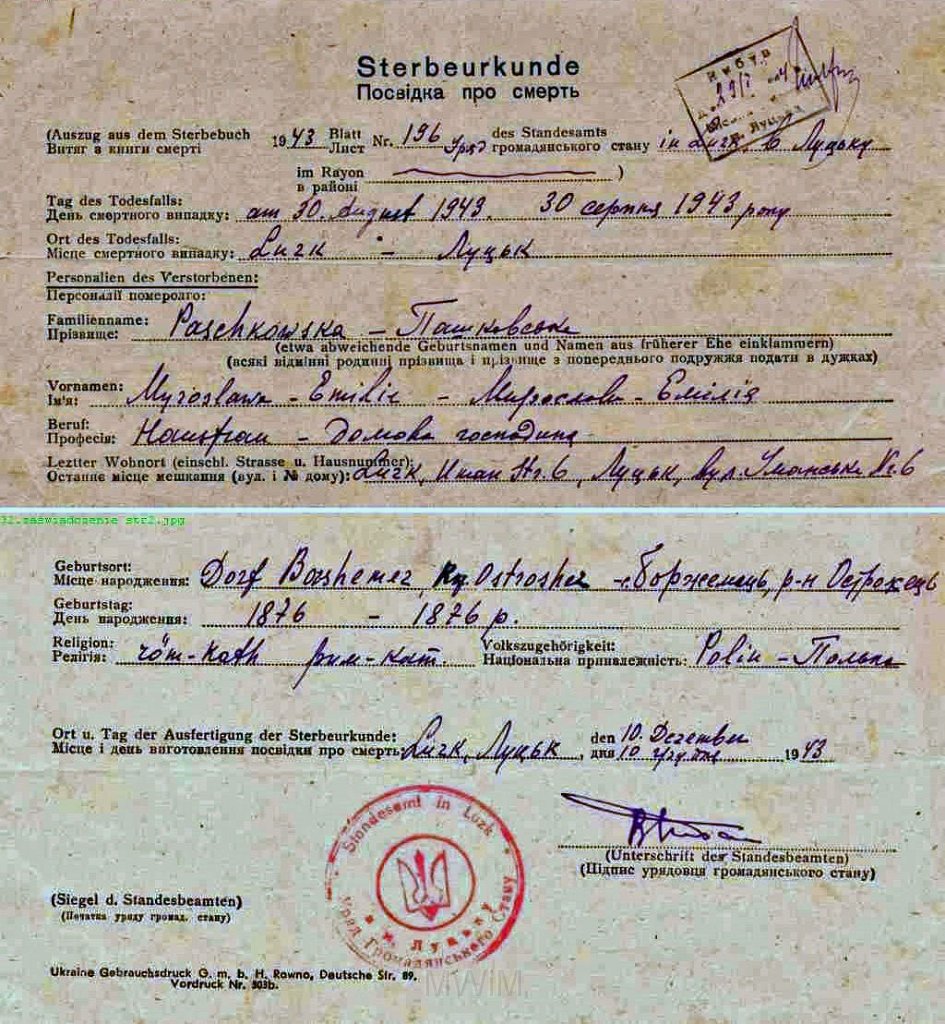 Sterbeurkunde
Посвідка про смерть
вибув
29/
м. Луцька
(Auszug aus dem Sterbebuch 1943 Blatt Nr. 196 des Standesamts in Luzk, в Луцьку
Витяг з книги смерті Лист Уряд громадянського стану
im Rayon )
в районі
Tag des Todesfalls:
День смертного випадку: am 30. August 1943. 30 серпня 1943 року
Ort des Todesfalls:
Місце смертного випадку: Luzk - Луцьк
Personalien des Verstorbenen:
Персоналії померолго:
Familienname:
Прізвище: Paschkowska - Пашковська
(etwa abweichende Geburtsnamen und Namen aus früherer Ehe einklammern)
(всякі відмінні родинні прізвища і прізвище з попереднього подружжя подати в дужках)
Vornamen:
Ім'я: Myroslawa - Emilie - Мирослава - Емілія
Beruf:
Професія: Hausfrau - Домова господиня
Leztter Wohnort (einschl. Strasse u. Hausnummer):
Останнє місце мешкання (вул. і № дому): Luzk, Uman Str. 6, Луцьк, вул. Уманська № 6
32.zaswiadczenie str2.jpg
Geburtsort:
Місце народження: Dorf Borshemez, Ostroshez - с. Боржемець, р-н Острожець
Geburtstag:
День народження: 1876 - 1876 р.
Religion: Volkszugehörigkeit:
Релігія: röm-kath рим-кат. Національна приналежність: Polin - Полька
Ort u. Tag der Ausfertigung der Sterbeurkunde: den 10. Dezember
Місце і день виготовлення посвідки про смерть: Luzk, Луцьк, дня 10 грудня 1943
Standesamt in Luzk
в м. Луцьку
Уряд Громадянського Стану
(Unterschrift des Standesbeamten)
(Підпис урядовця громадянського стану)
(Siegel d. Standesbeamten)
(Печатка уряду громад. стану)
Ukraine Gebrauchsdruck G. m. b. H. Rowno, Deutsche Str. 89.
Vordruck Nr. 303b.
MWIM